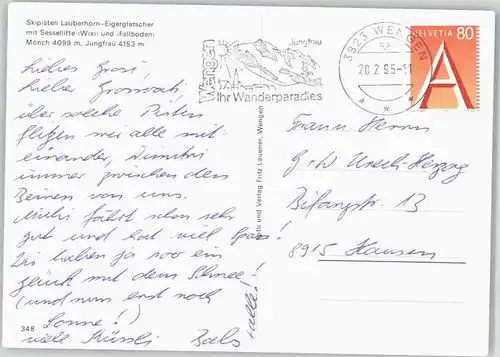 Skipisten Lauberhorn-Eigergletscher
mit Sesselliften ‹Wixi› und ‹Fallboden›
Mönch 4099 m, Jungfrau 4153 m
Liebes Grosi,
lieber Grossvati
über solche Pisten
flitzen wir alle mit-
einander, Dimitri
immer zwischen den
Beinen von uns.
fährt schon sehr
gut und hat viel Spass!
Wir haben ja soo ein
Glück mit dem Schnee
(und nun erst noch
Sonne!)
viele Küssli Babs
+ alle!
348
Foto und Verlag Fritz Lauener, Wengen
Wengen
Jungfrau
Ihr Wanderparadies
3823 WENGEN
20.2.96-11
HELVETIA 80
A
Frau u. Herrn
G + W Ursch-Herzog
Bifangstr. 13
8915 Hausen